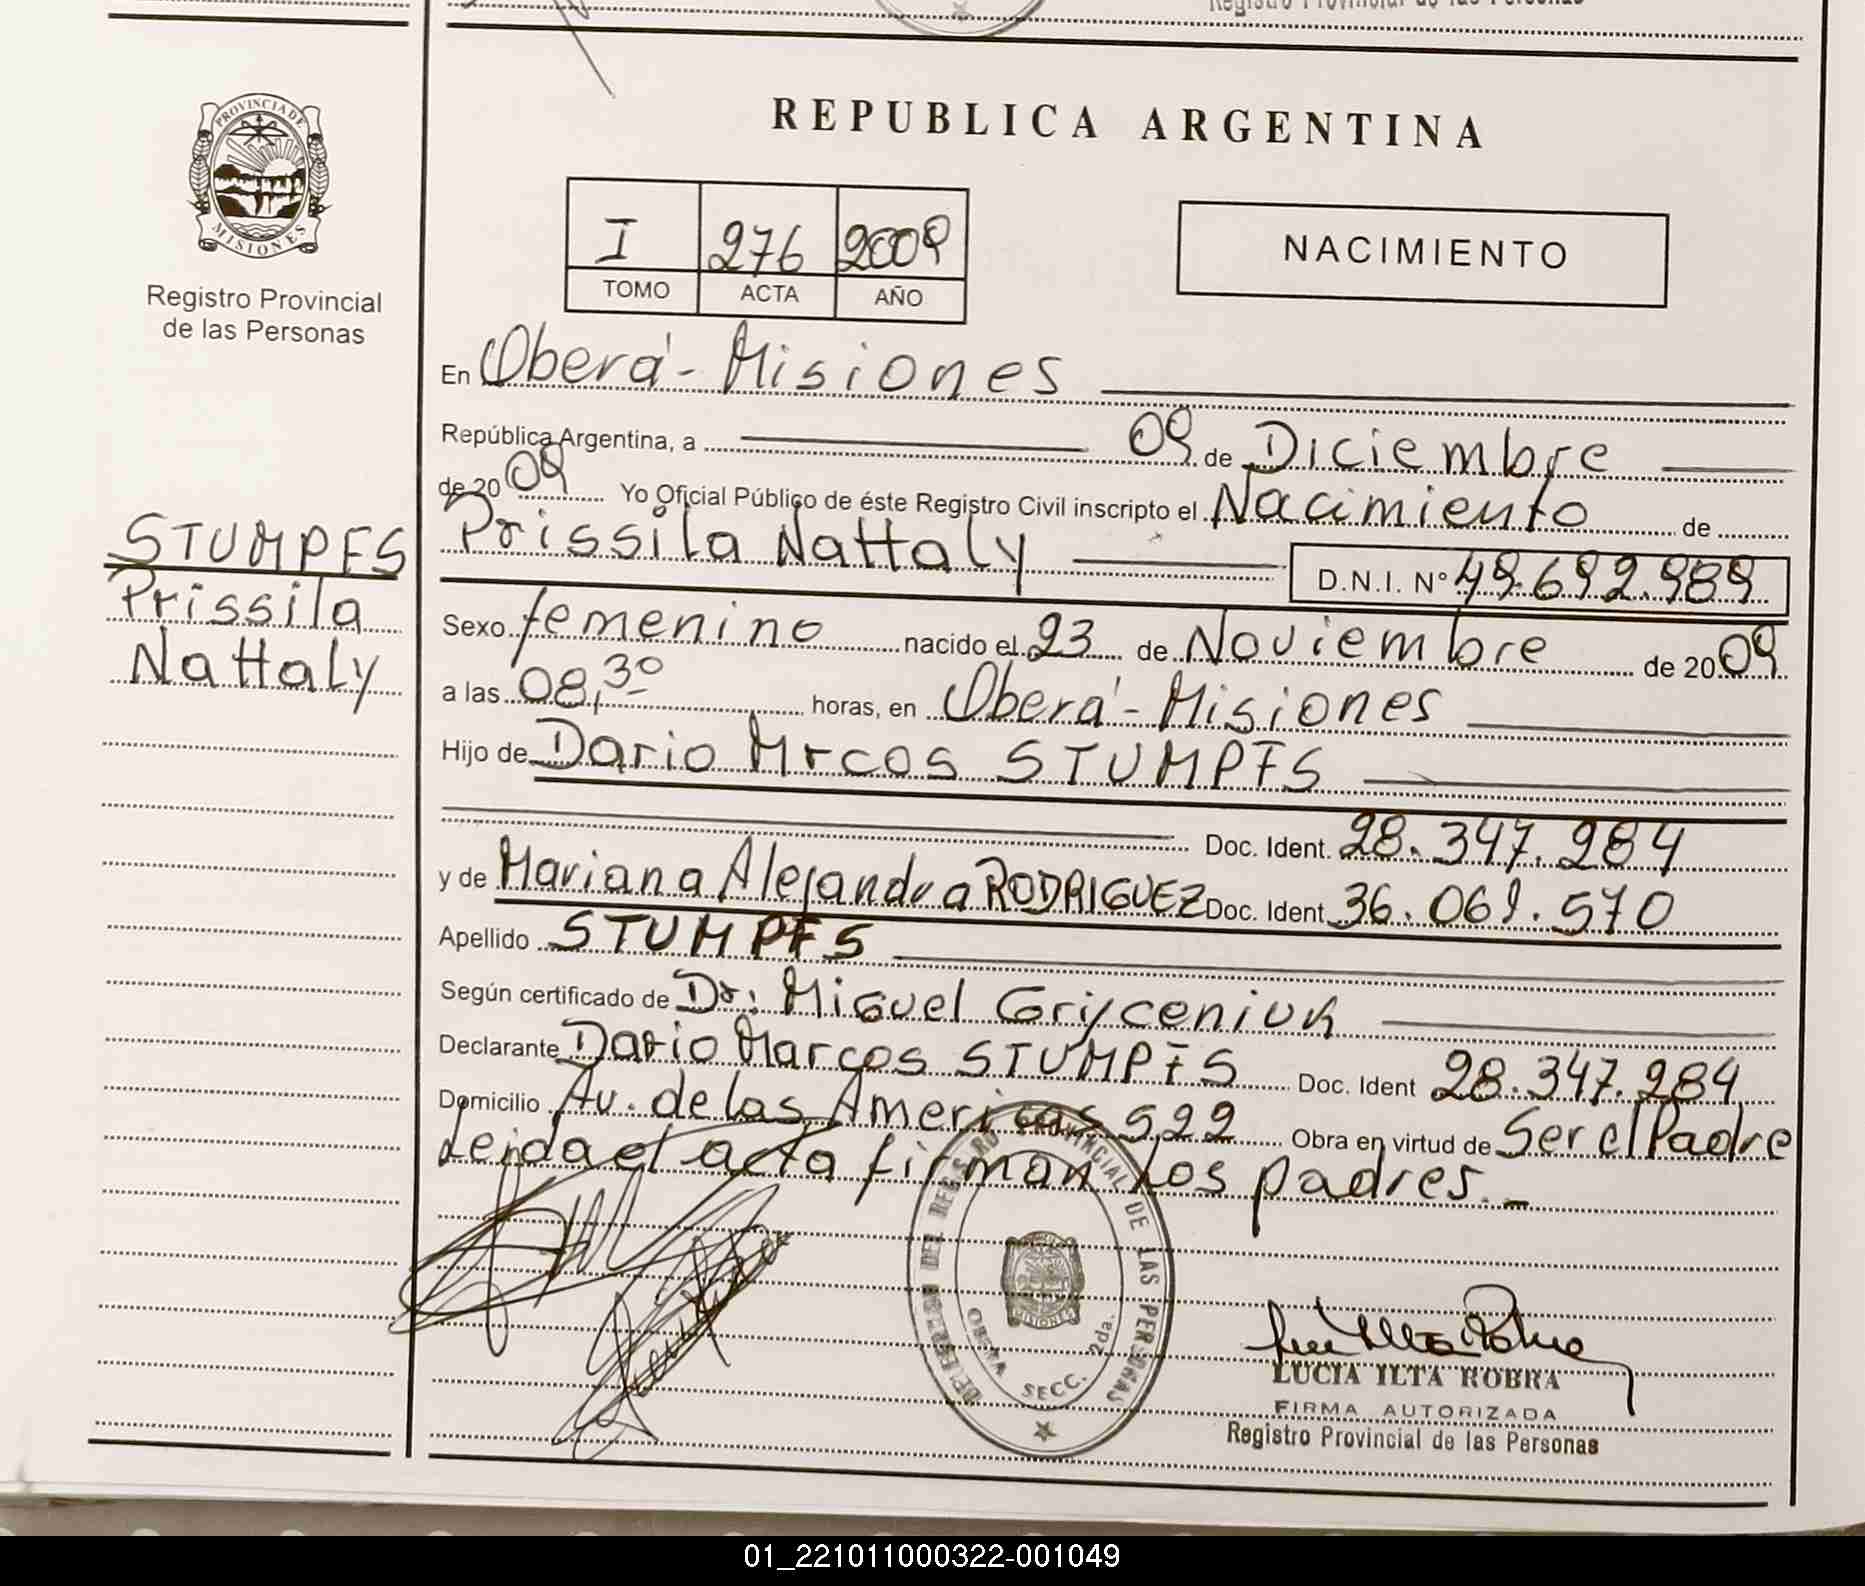 Registro Provincial de las Personas
PROVINCIA DE
MISIONES
Registro Provincial
de las Personas
STUMPFS
Prissila
Nattaly
REPUBLICA ARGENTINA
I 276 2009
TOMO ACTA AÑO
NACIMIENTO
En Oberá - Misiones
República Argentina, a 09 de Diciembre
de 20 09 Yo Oficial Público de éste Registro Civil inscripto el Nacimiento de
Prissila Nattaly D.N.I. N° 49.692.989
Sexo femenino nacido el 23 de Noviembre de 20 09
a las 08,30 horas, en Oberá - Misiones
Hijo de Dario Mrcos STUMPFS
Doc. Ident. 28.347.284
y de Mariana Alejandra RODRIGUEZ Doc. Ident 36.061.570
Apellido STUMPFS
Según certificado de Dr: Miguel Gryceniuk
Declarante Dario Marcos STUMPFS Doc. Ident 28.347.284
Domicilio Av. de las Americas 522 Obra en virtud de Ser el Padre
Leida el acta firman Los padres.-
DEL REGISTRO PROVINCIAL DE LAS PERSONAS
MISIONES
OBERA SECC. 2da.
LUCIA ILTA ROBRA
FIRMA AUTORIZADA
Registro Provincial de las Personas
01_221011000322-001049